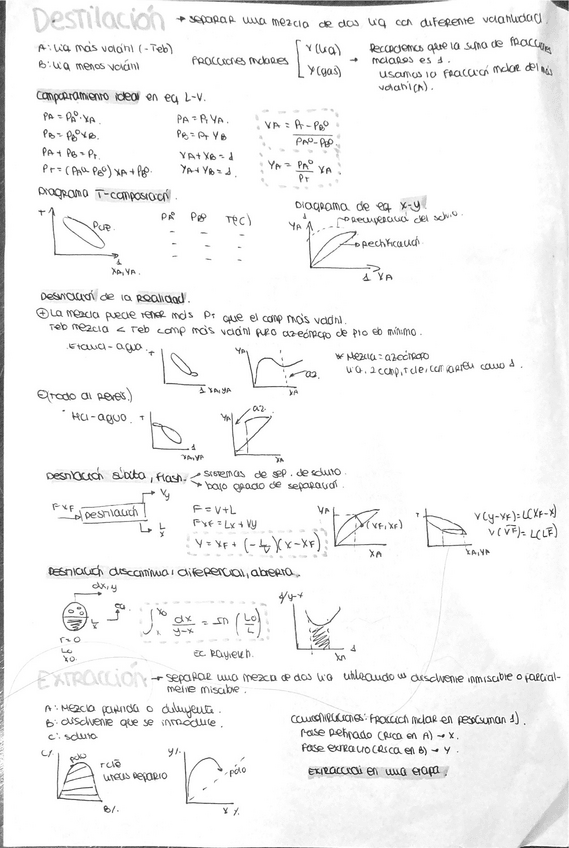 Destilación → separar una mezcla de dos liq con diferente volatilidad.
A: Liq más volátil (-Teb)
B: liq menos volátil
Fracciones molares
x (liq)
y (gas)
→ Recordemos que la suma de fracciones
molares es 1.
Usamos la fracción molar del más
volátil (A).
Comportamiento ideal en eq L-V.
PA = PAº · XA
PB = PBº XB.
PA + PB = PT.
PT = (PAº - PBº) XA + PBº
PA = PT YA.
PB = PT YB
XA + XB = 1
YA + YB = 1.
XA = PT - PBº / PAº - PBº
YA = PAº / PT XA
Diagrama T-composición.
T
1
XA, YA.
PAº PBº T(ºC)
Diagrama de eq x-y
YA
1
rectificación
1 XA
Destilación de la realidad.
⊕ La mezcla puede tener más PT que el comp más volátil.
Teb mezcla < Teb comp más volátil puro azeótropo de pto eb mínimo.
Etanol-agua
T
1 XA, YA
YA
az.
XA
* Mezcla = azeótropo
⊖ (Todo al revés.)
HCl-agua.
T
1
XA, YA
YA
az.
XA
Destilación súbita, flash.
sistemas de sep. de soluto.
bajo grado de separación.
F XF
Destilación
V y
L
x
F = V + L
F XF = Lx + Vy
Y = XF + (-L/V)(X - XF)
YA
(XF, XF)
XA
T
XA, YA
V(y-XF) = L(XF-X)
Destilación discontinua, diferencial, abierta.
L
x
t=0
L0
X0
dx / y-x = ln (L0 / L)
Ec Rayleigh.
1/y-x
1
Extracción → separar una mezcla de dos liq utilizando un disolvente inmiscible o parcial-
mente miscible.
A: Mezcla partida o diluyente.
B: disolvente que se introduce.
C: soluto
Concentraciones: Fracción molar en peso (suman 1).
Fase Refinado (Rica en A) → X.
Fase extracto (Rica en B) → Y.
Extracción en una etapa.
C%
polo
reparto
B%
Y%
polo
X%